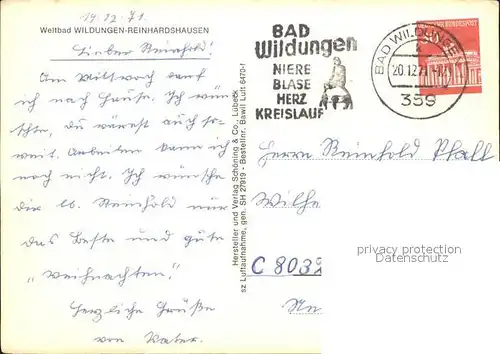 19.12.71.
Weltbad WILDUNGEN-REINHARDSHAUSEN
Lieber Reinhold!
Am Mittwoch darf
ich nach Hause. Ich wün
schte, du wärest auch so-
weit. Arbeiten kann ich
noch nicht. Ich wünsche
dir lb. Reinhold nur
das Beste und gute
"Weihnachten."
Herzliche Grüße
von Vater.
Hersteller und Verlag Schöning & Co., Lübeck
sz Luftaufnahme, gen. SH 27919 - Bestellnr. Bawil Luft 6470-1
BAD
Wildungen
NIERE
BLASE
HERZ
KREISLAUF
BAD WILDUNGEN
20.12.71
359
BUNDESPOST
Herrn Reinhold Pfaff
Wilhe
privacy protection
Datenschutz
C 8039
Ne